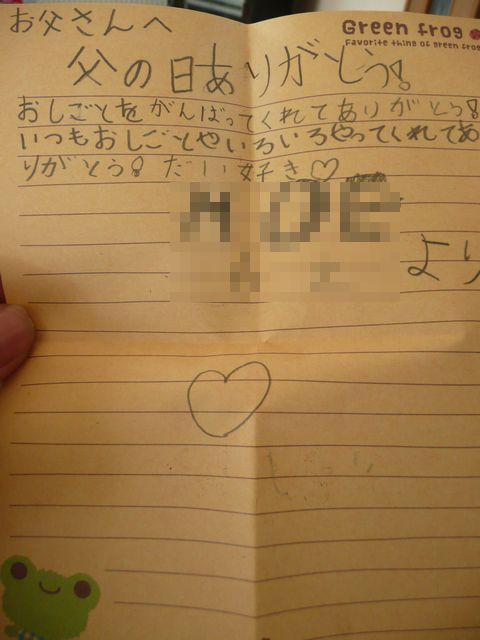 お父さんへ
Green frog
Favorite thing of green frog
父の日ありがとう!
おしごとをがんばってくれてありがとう!
いつもおしごとやいろいろやってくれてあ
りがとう! だい好き♡
より